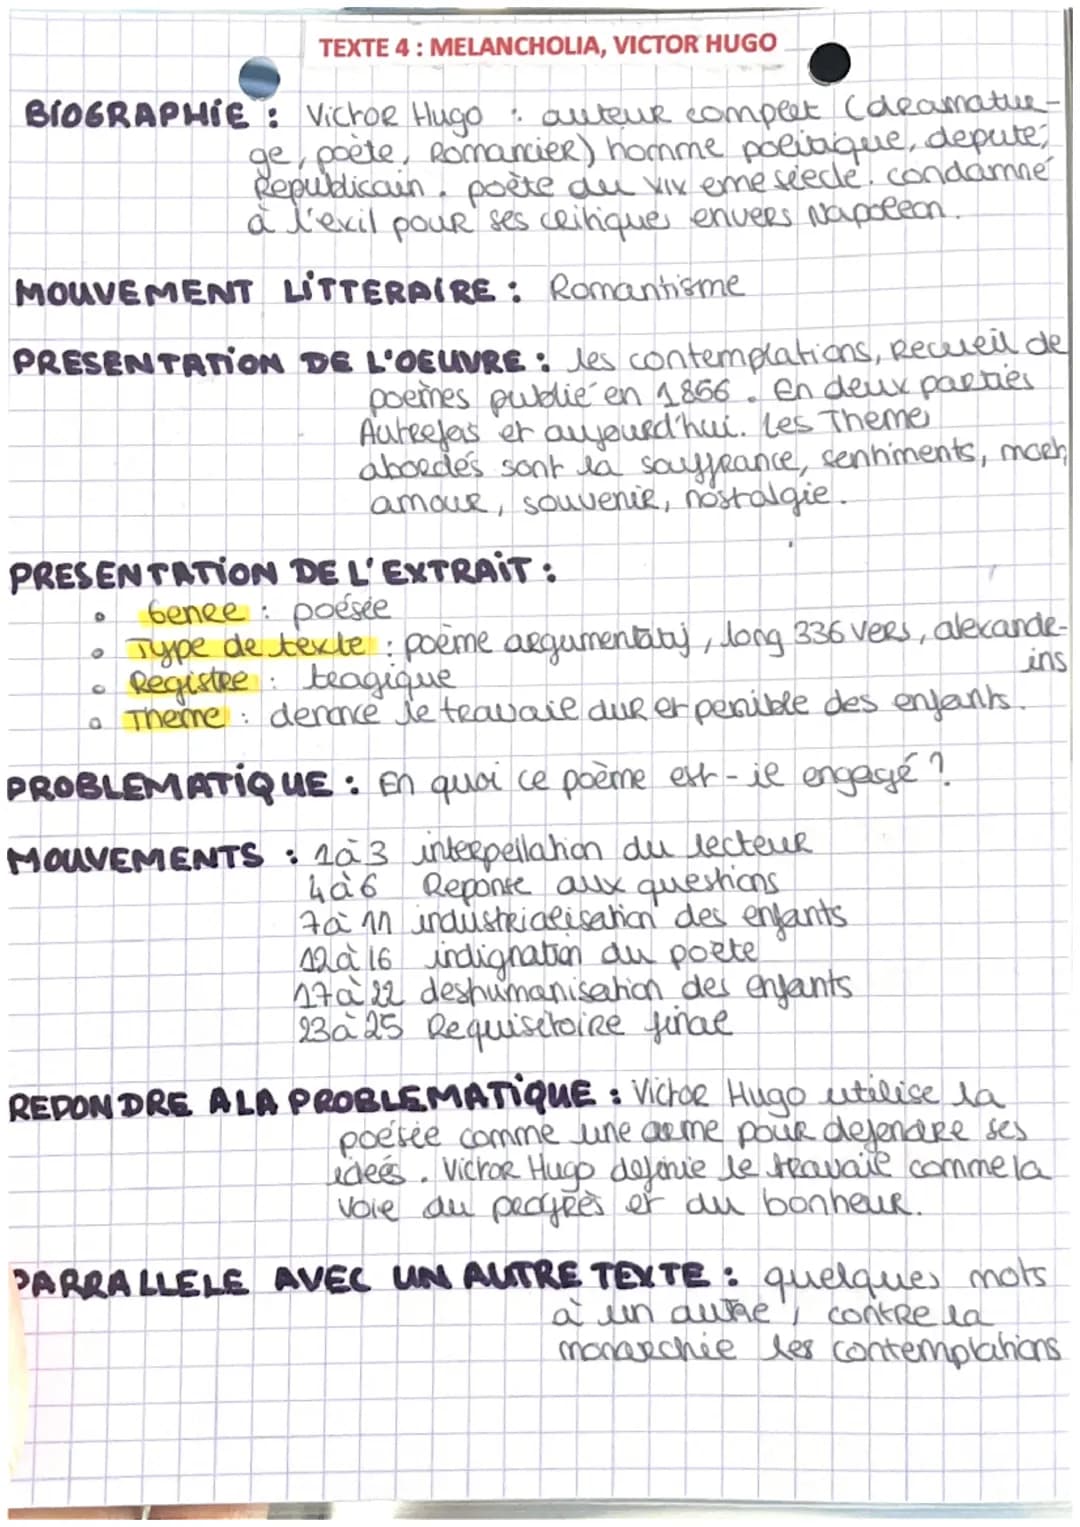 TEXTE 4 : MELANCHOLIA, VICTOR HUGO
BIOGRAPHIE : Victor Hugo : auteur complet (dramatur-
ge, poète, Romancier) homme politique, depute,
Republicain. poète du XIX eme siecle. condamné
à l'exil pour ses critiques envers Napoleon.
MOUVEMENT LITTERAIRE : Romantisme
PRESENTATION DE L'OEUVRE : les contemplations, Recueil de
poemes publié en 1856. En deux parties
Autrefois et aujourd'hui. Les Themes
abordés sont la souffrance, sentiments, mort,
amour, souvenir, nostalgie.
PRESENTATION DE L'EXTRAIT :
• Genre : poésie
• Type de texte : poème argumentatif, long 336 vers, alexandr-
ins
• Registre : tragique
• Theme : denonce le travail dur et penible des enfants.
PROBLEMATIQUE : En quoi ce poème est-il engagé ?
MOUVEMENTS : 1à3 interpellation du lecteur
4à6 Reponse aux questions
7à11 industrialisation des enfants
12à16 indignation du poete
17à22 deshumanisation des enfants
23à25 Requisitoire final
REPONDRE A LA PROBLEMATIQUE : Victor Hugo utilise la
poésie comme une arme pour defendre ses
ideés. Victor Hugo definie le travail comme la
voie du progrès et du bonheur.
PARRALLELE AVEC UN AUTRE TEXTE : quelques mots
à un autre, contre la
monarchie les contemplations